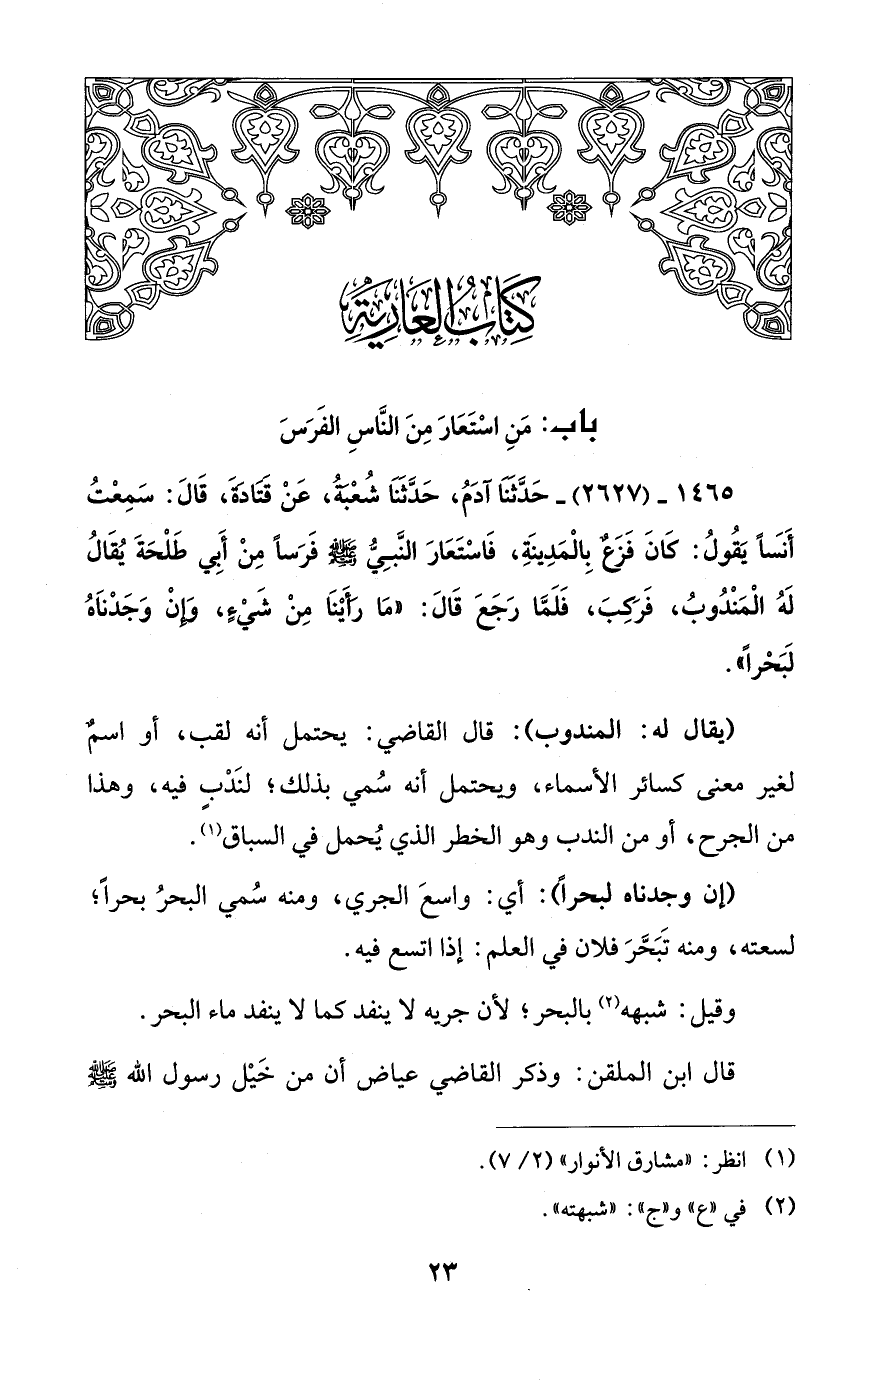 كِتَابُ العَارِيَّةِ
باب: مَنِ اسْتَعَارَ مِنَ النَّاسِ الفَرَسَ
١٤٦٥ ـ (٢٦٢٧) ـ حَدَّثَنَا آدَمُ، حَدَّثَنَا شُعْبَةُ، عَنْ قَتَادَةَ، قَالَ: سَمِعْتُ
أَنَساً يَقُولُ: كَانَ فَزَعٌ بِالْمَدِينَةِ، فَاسْتَعَارَ النَّبِيُّ ﷺ فَرَساً مِنْ أَبِي طَلْحَةَ يُقَالُ
لَهُ الْمَنْدُوبُ، فَرَكِبَ، فَلَمَّا رَجَعَ قَالَ: «مَا رَأَيْنَا مِنْ شَيْءٍ، وَإِنْ وَجَدْنَاهُ
لَبَحْراً».
(يقال له: المندوب): قال القاضي: يحتمل أنه لقب، أو اسمٌ
لغير معنى كسائر الأسماء، ويحتمل أنه سُمي بذلك؛ لنَدْبٍ فيه، وهذا
من الجرح، أو من الندب وهو الخطر الذي يُحمل في السباق(١).
(إن وجدناه لبحراً): أي: واسعَ الجري، ومنه سُمي البحرُ بحراً؛
لسعته، ومنه تَبَحَّرَ فلان في العلم: إذا اتسع فيه.
وقيل: شبهه(٢) بالبحر؛ لأن جريه لا ينفد كما لا ينفد ماء البحر.
قال ابن الملقن: وذكر القاضي عياض أن من خَيْل رسول الله ﷺ
(١) انظر: «مشارق الأنوار» (٢/ ٧).
(٢) في «ع» و«ج»: «شبهته».
٢٣